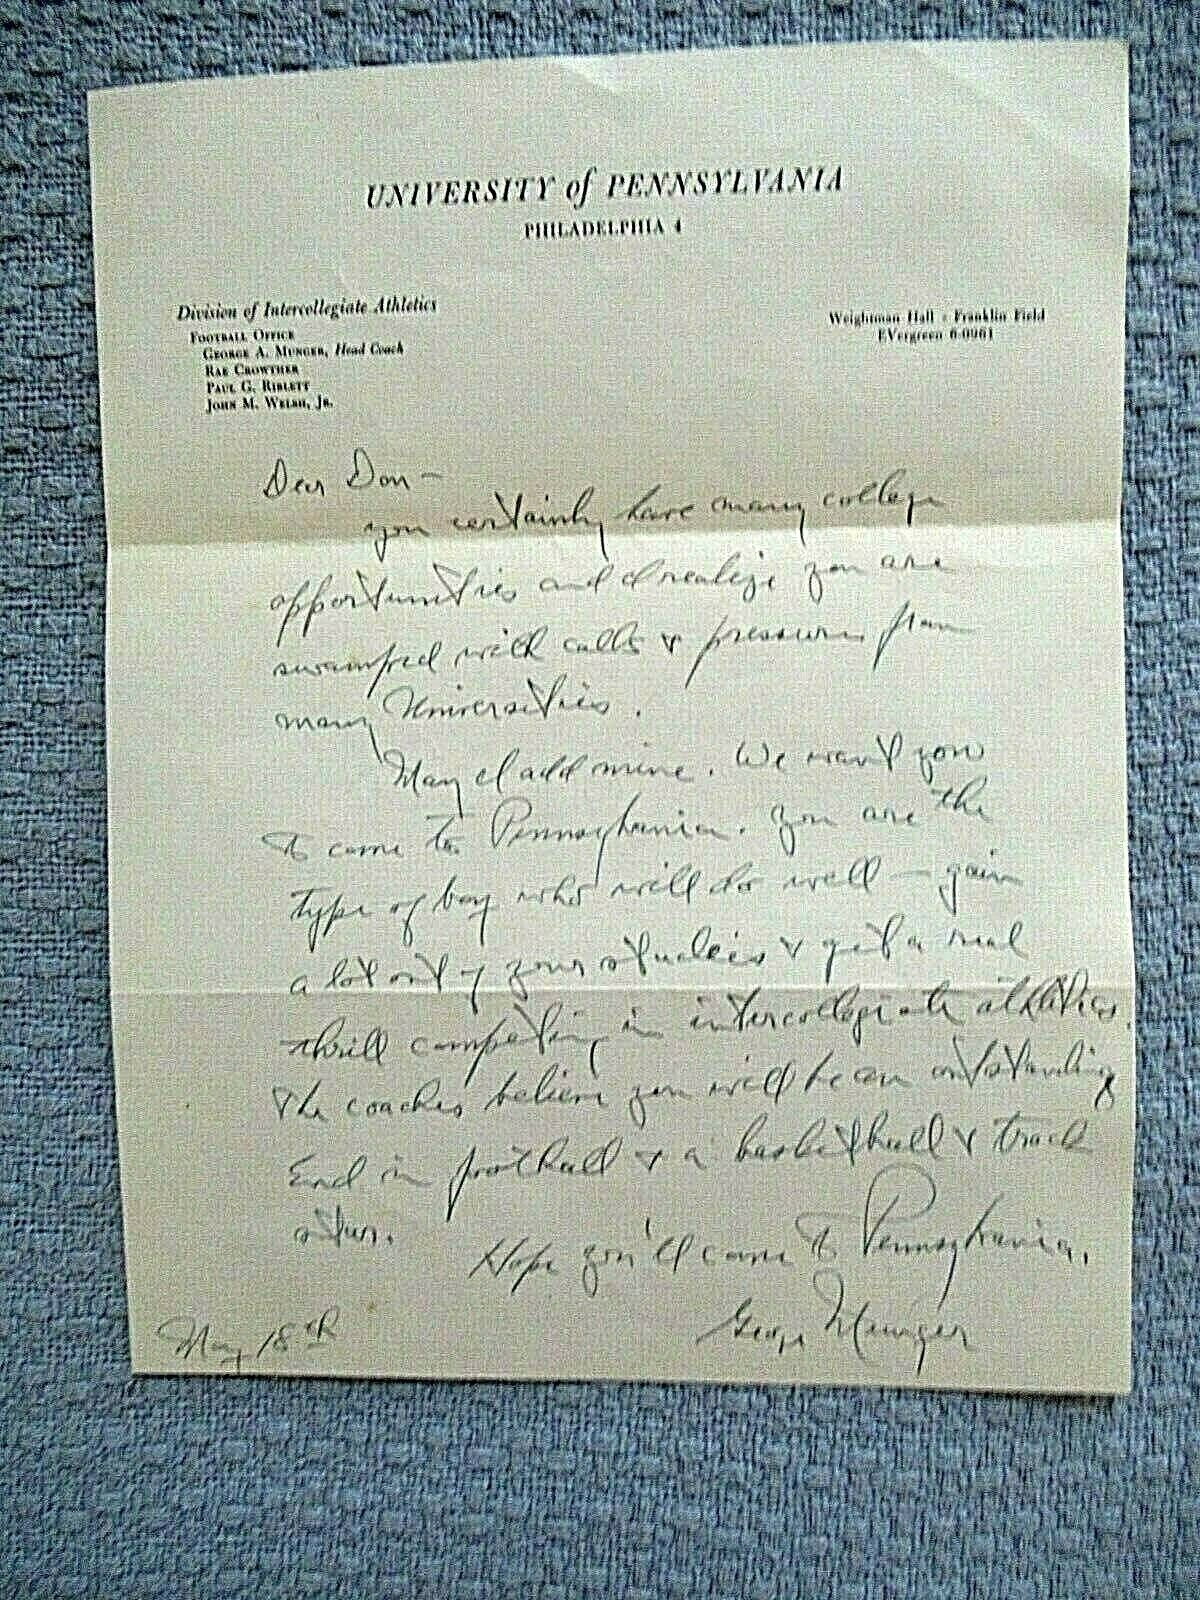 UNIVERSITY of PENNSYLVANIA
PHILADELPHIA 4
Division of Intercollegiate Athletics
FOOTBALL OFFICE
GEORGE A. MUNGER, Head Coach
RAE CROWTHER
PAUL G. RIBLETT
JOHN M. WELSH, JR.
Weightman Hall - Franklin Field
EVergreen 6-0961
Dear Don -
you certainly have many college
opportunities and I realize you are
swamped with calls & pressures from
many Universities.
May I add mine. We want you
to come to Pennsylvania. You are the
type of boy who will do well - gain
a lot out of your studies & get a real
thrill competing in intercollegiate athletics.
The coaches believe you will be an outstanding
End in football & a basketball & track
star.
Hope you'll come to Pennsylvania.
George Munger
May 18th